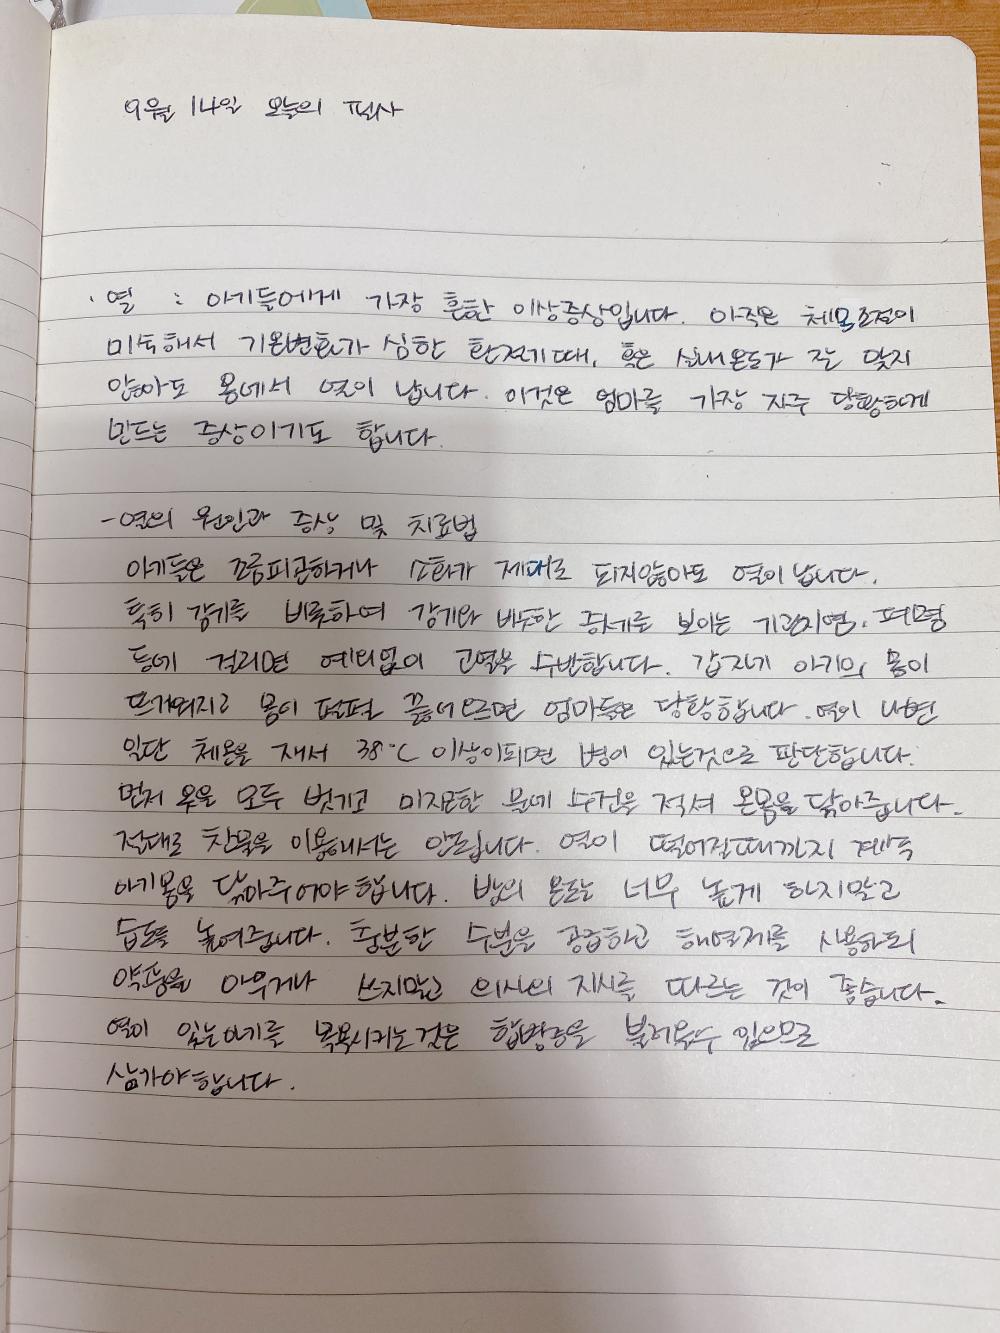 9월 14일 오늘의 필사
· 열 : 아기들에게 가장 흔한 이상증상입니다. 아직은 체온조절이
미숙해서 기온변화가 심한 환절기때, 혹은 실내온도가 잘 맞지
않아도 몸에서 열이 납니다. 이것은 엄마를 가장 자주 당황하게
만드는 증상이기도 합니다.
- 열의 원인과 증상 및 치료법
아기들은 조금피곤하거나 소화가 제대로 되지않아도 열이납니다.
특히 감기를 비롯하여 감기와 비슷한 증세를 보이는 기관지염, 폐렴
등에 걸리면 예외없이 고열을 수반합니다. 갑자기 아기의 몸이
뜨거워지고 몸이 펄펄 끓어오르면 엄마들은 당황합니다. 열이 나면
일단 체온을 재서 38℃ 이상이되면 병이 있는것으로 판단합니다.
먼저 옷을 모두 벗기고 미지근한 물에 수건을 적셔 온몸을 닦아줍니다.
절대로 찬물을 이용해서는 안됩니다. 열이 떨어질때까지 계속
아기몸을 닦아주어야합니다. 방의 온도는 너무 높게 하지말고
습도를 높여줍니다. 충분한 수분을 공급하고 해열제를 사용하되
약품을 아무거나 쓰지말고 의사의 지시를 따르는 것이 좋습니다.
열이 있는아기를 목욕시키는것은 합병증을 불러올수 있으므로
삼가야합니다.